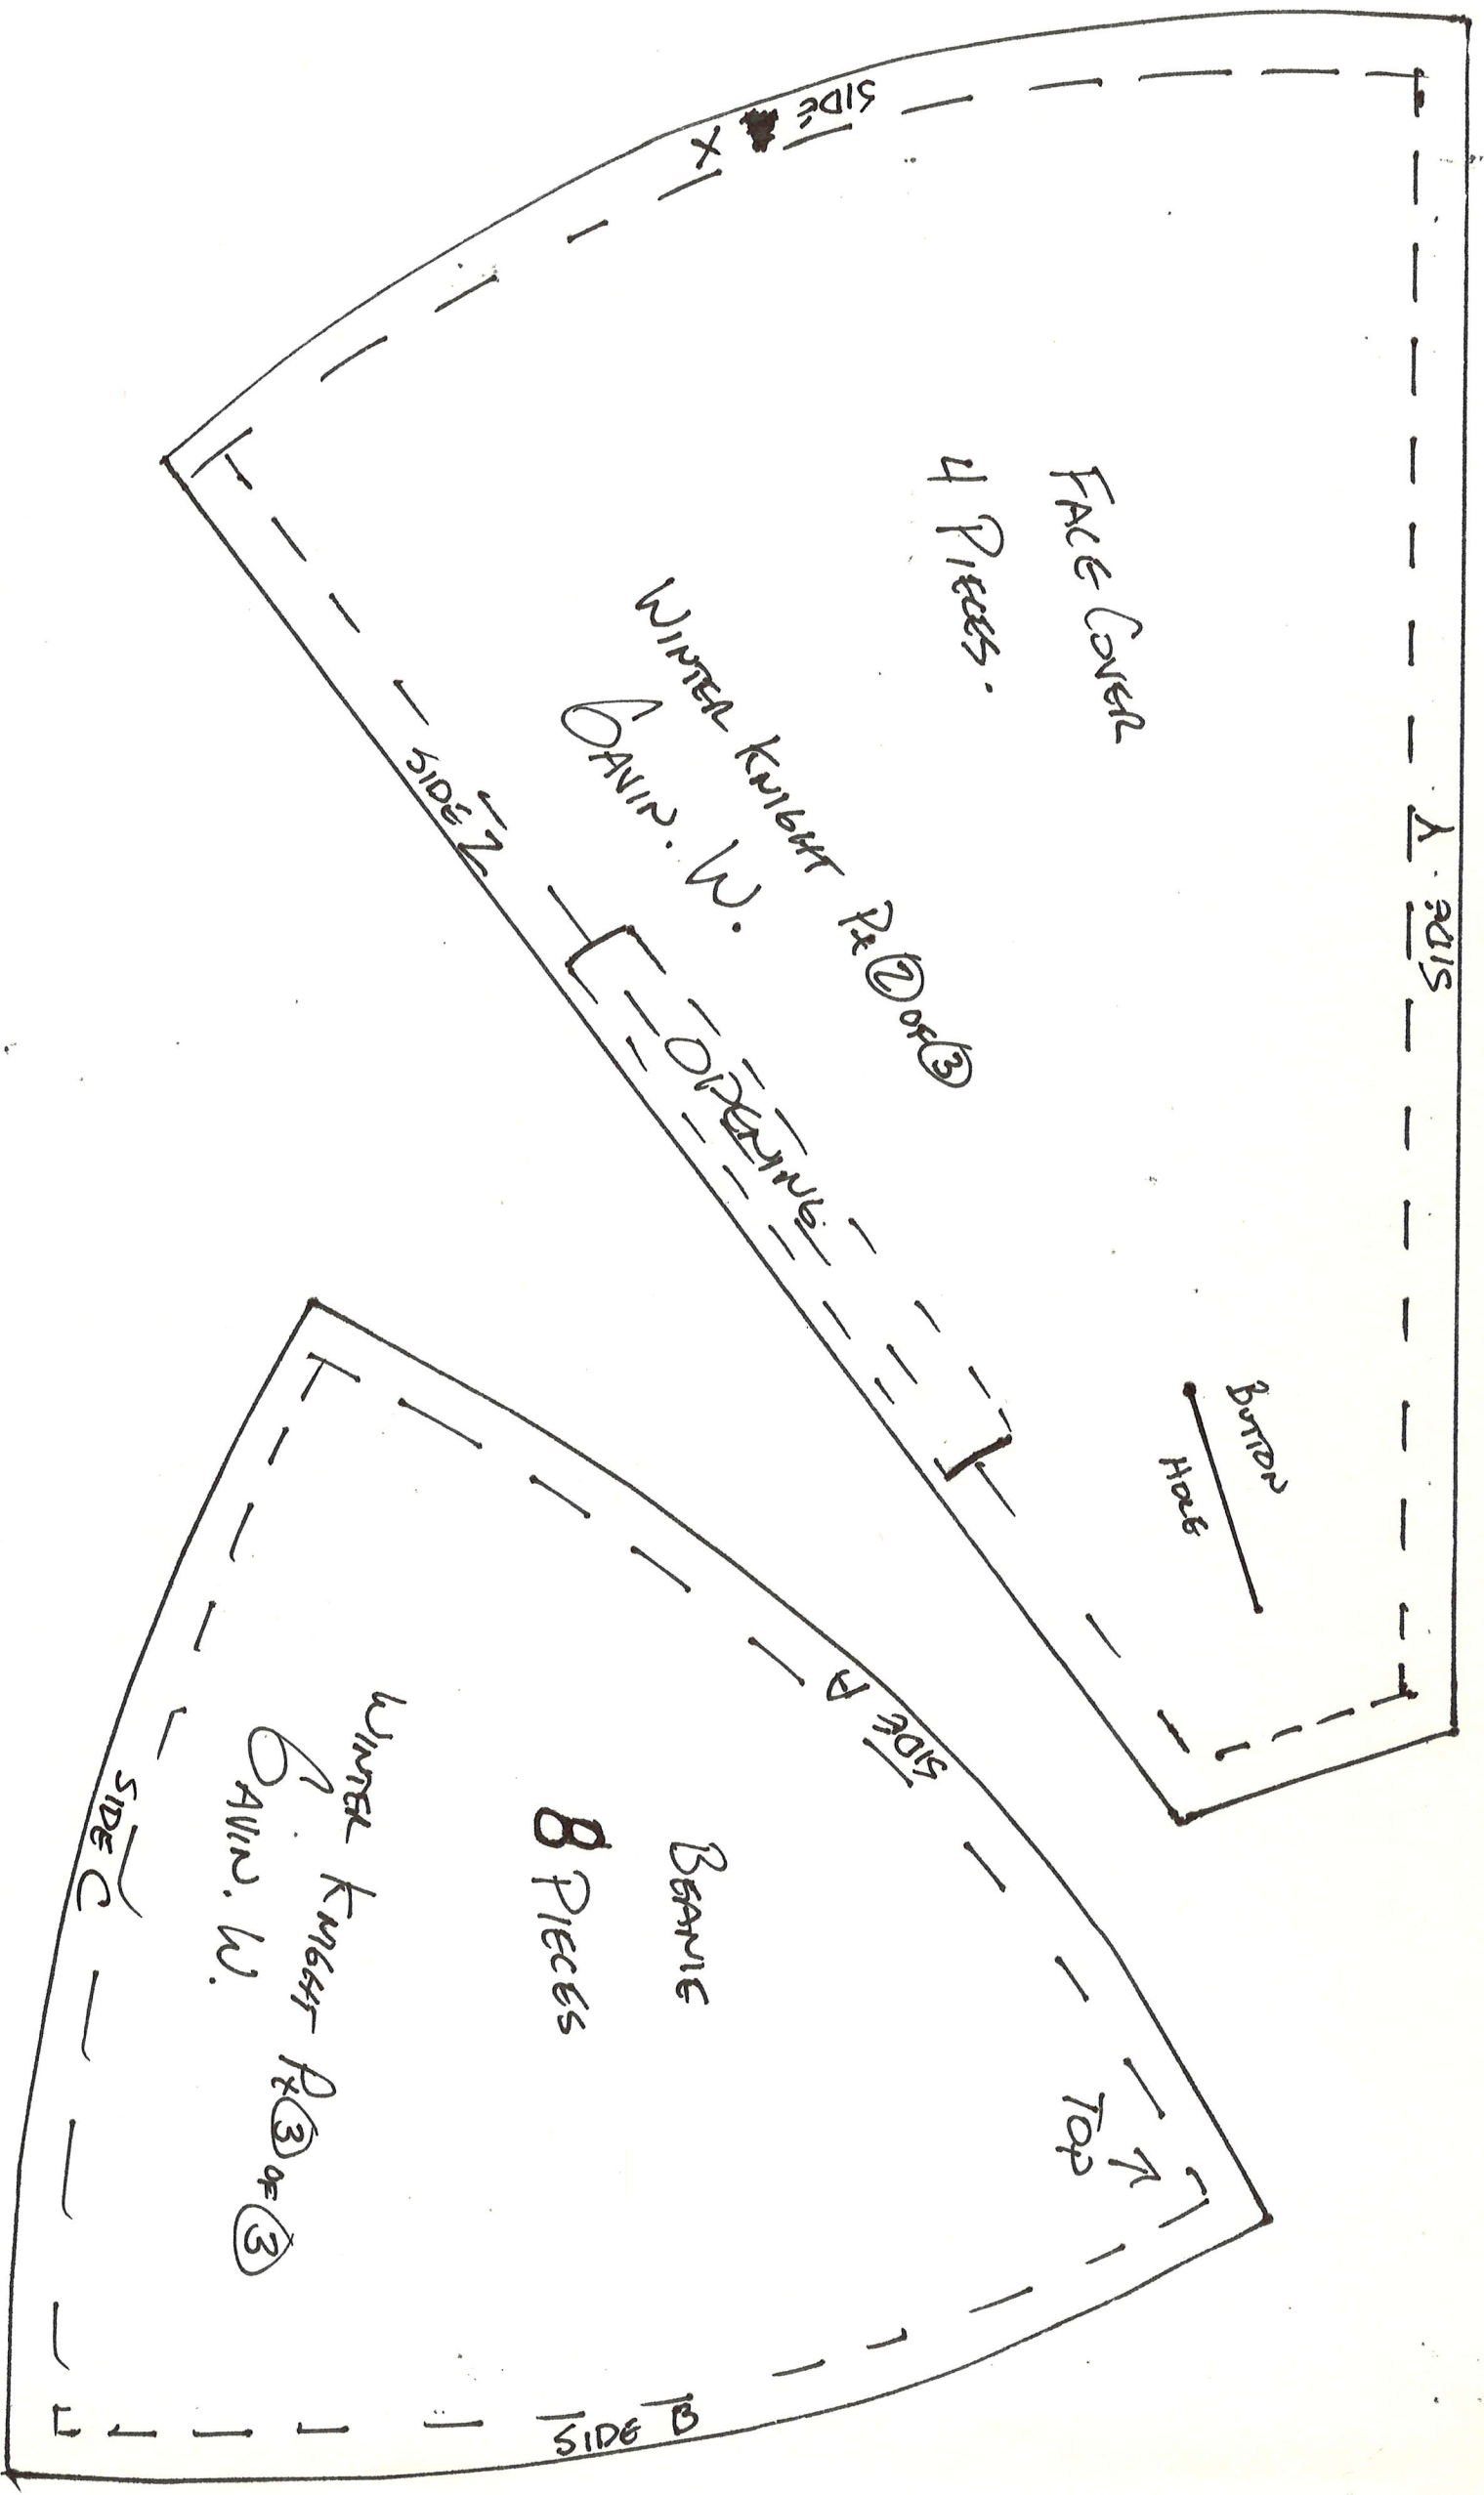 SIDE X
FACE COVER
4 PIECES.
WINTER KNIGHT Pt 2 OF 3
GAVIN. W.
SIDE Y
SIDE Z
OPENING
BUTTON
HOLE
SIDE A
TOP
BEANIE
8 PIECES
WINTER KNIGHT Pt 3 OF 3
GAVIN. W.
SIDE C
SIDE B